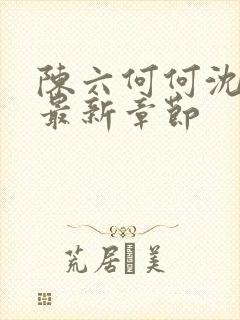 陳六何何沈
最新章節
荒居美